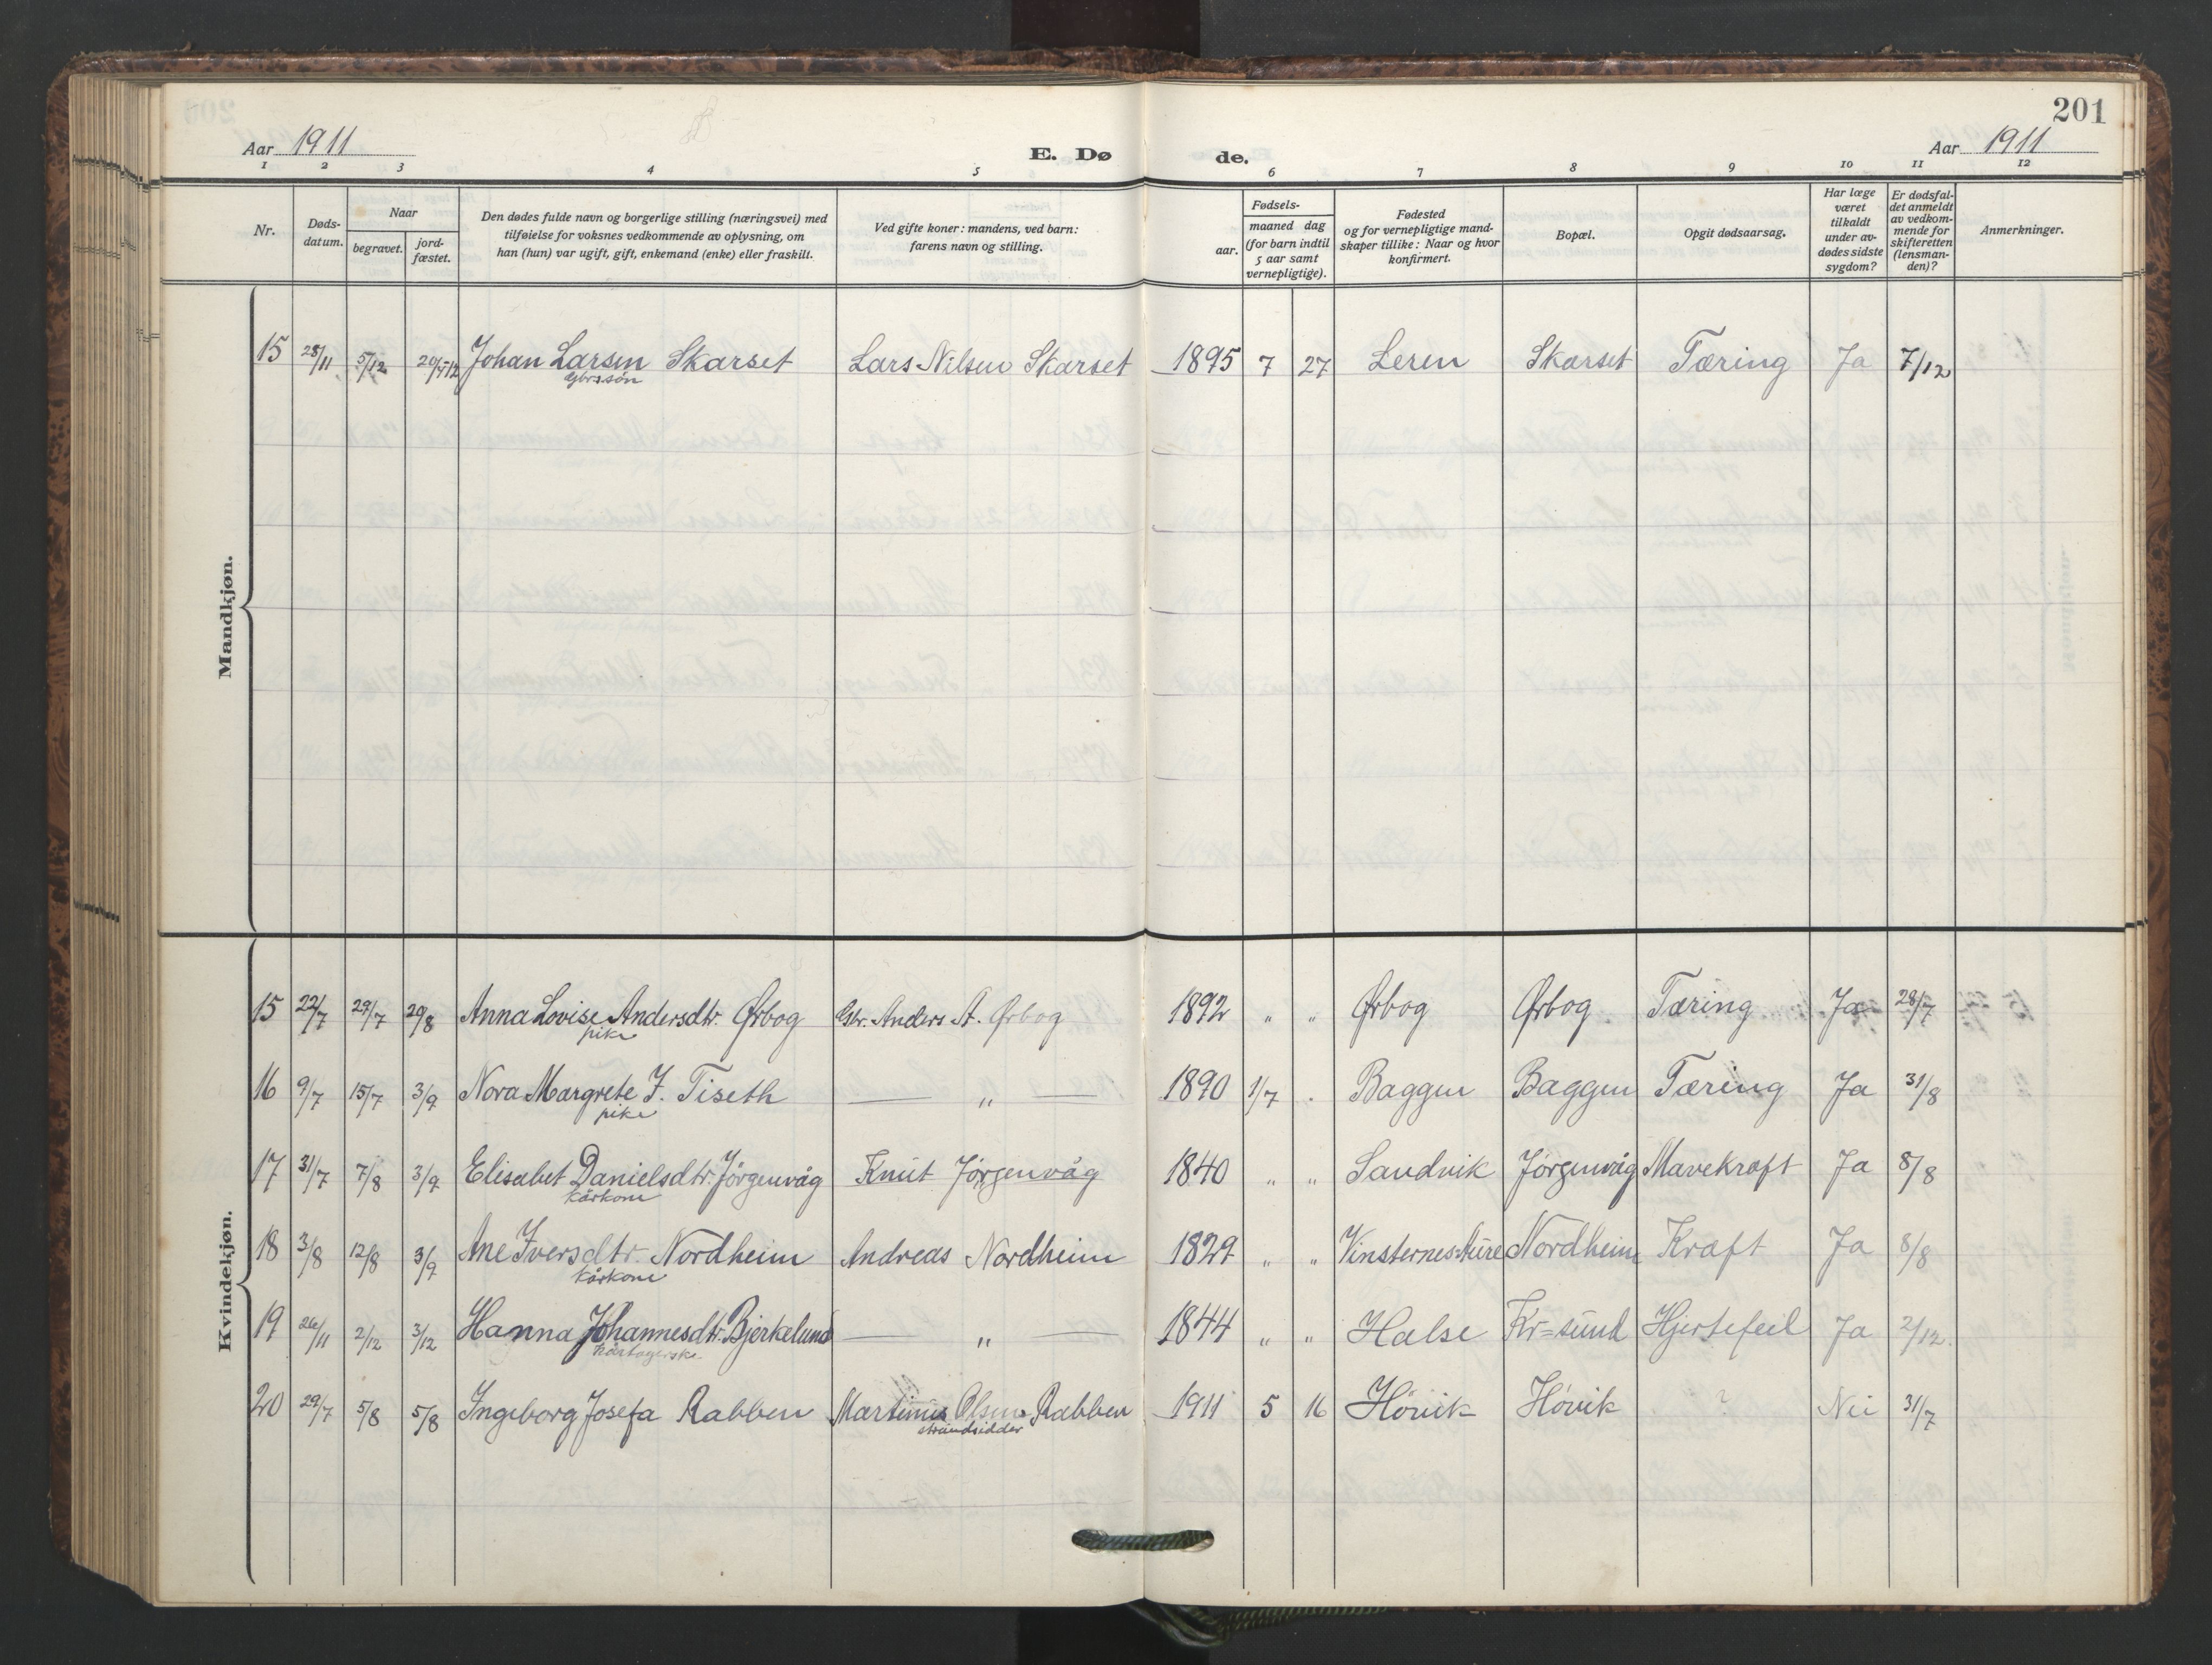 201
Aar 1911
E. Dø de.
Aar 1911
1 2 3 4 5 6 7 8 9 10 11 12
Nr.
Døds-
datum.
Naar
begravet.
jord-
fæstet.
Den dødes fulde navn og borgerlige stilling (næringsvei) med
tilføielse for voksnes vedkommende av oplysning, om
han (hun) var ugift, gift, enkemand (enke) eller fraskilt.
Ved gifte koner: mandens, ved barn:
farens navn og stilling.
Fødsels-
aar.
maaned dag
(for barn indtil
5 aar samt
vernepligtige).
Fødested
og for vernepligtige mand-
skaper tillike: Naar og hvor
konfirmert.
Bopæl.
Opgit dødsaarsag.
Har læge
været
tilkaldt
under av-
dødes sidste
sygdom?
Er dødsfal-
det anmeldt
av vedkom-
mende for
skifteretten
(lensman-
den)?
Anmerkninger.
Mandkjøn.
15 28/11 5/12 Johan Larsen Skarset Lars Nilsen Skarset 1895 7 27 Leren Skarset Tæring Ja 7/12
Gbr.søn
Kvindekjøn.
15 22/7 29/7 20/8 Anna Lovise Andersdtr. Ørbog Gbr. Anders A. Ørbog 1892 " " Ørbog Ørbog Tæring Ja 28/7
pike
16 9/7 15/7 3/9 Nora Margrete J. Tiseth — " — 1890 1/7 . Baggen Baggen Tæring Ja 31/8
pike
17 31/7 7/8 3/9 Elisabet Danielsdtr. Jörgenvåg Knut Jörgenvåg 1840 " " Sandvik Jörgenvåg Mavekræft Ja 8/8
Kårkone
18 3/8 12/8 3/9 Ane Iversdtr. Nordheim Andreas Nordheim 1829 " " Vinsternes-Aure Nordheim Kræft Ja 8/8
Kårkone
19 26/11 2/12 3/12 Hanna Johannesdtr. Bjerkelund — " — 1844 " " Halse Kr=sund Hjertefeil Ja 2/12.
20 29/7 5/8 5/8 Ingeborg Josefa Rabben Martinus Olsen Rabben 1911 5 16 Hövik Hövik ? Nei 31/7
strandsidder